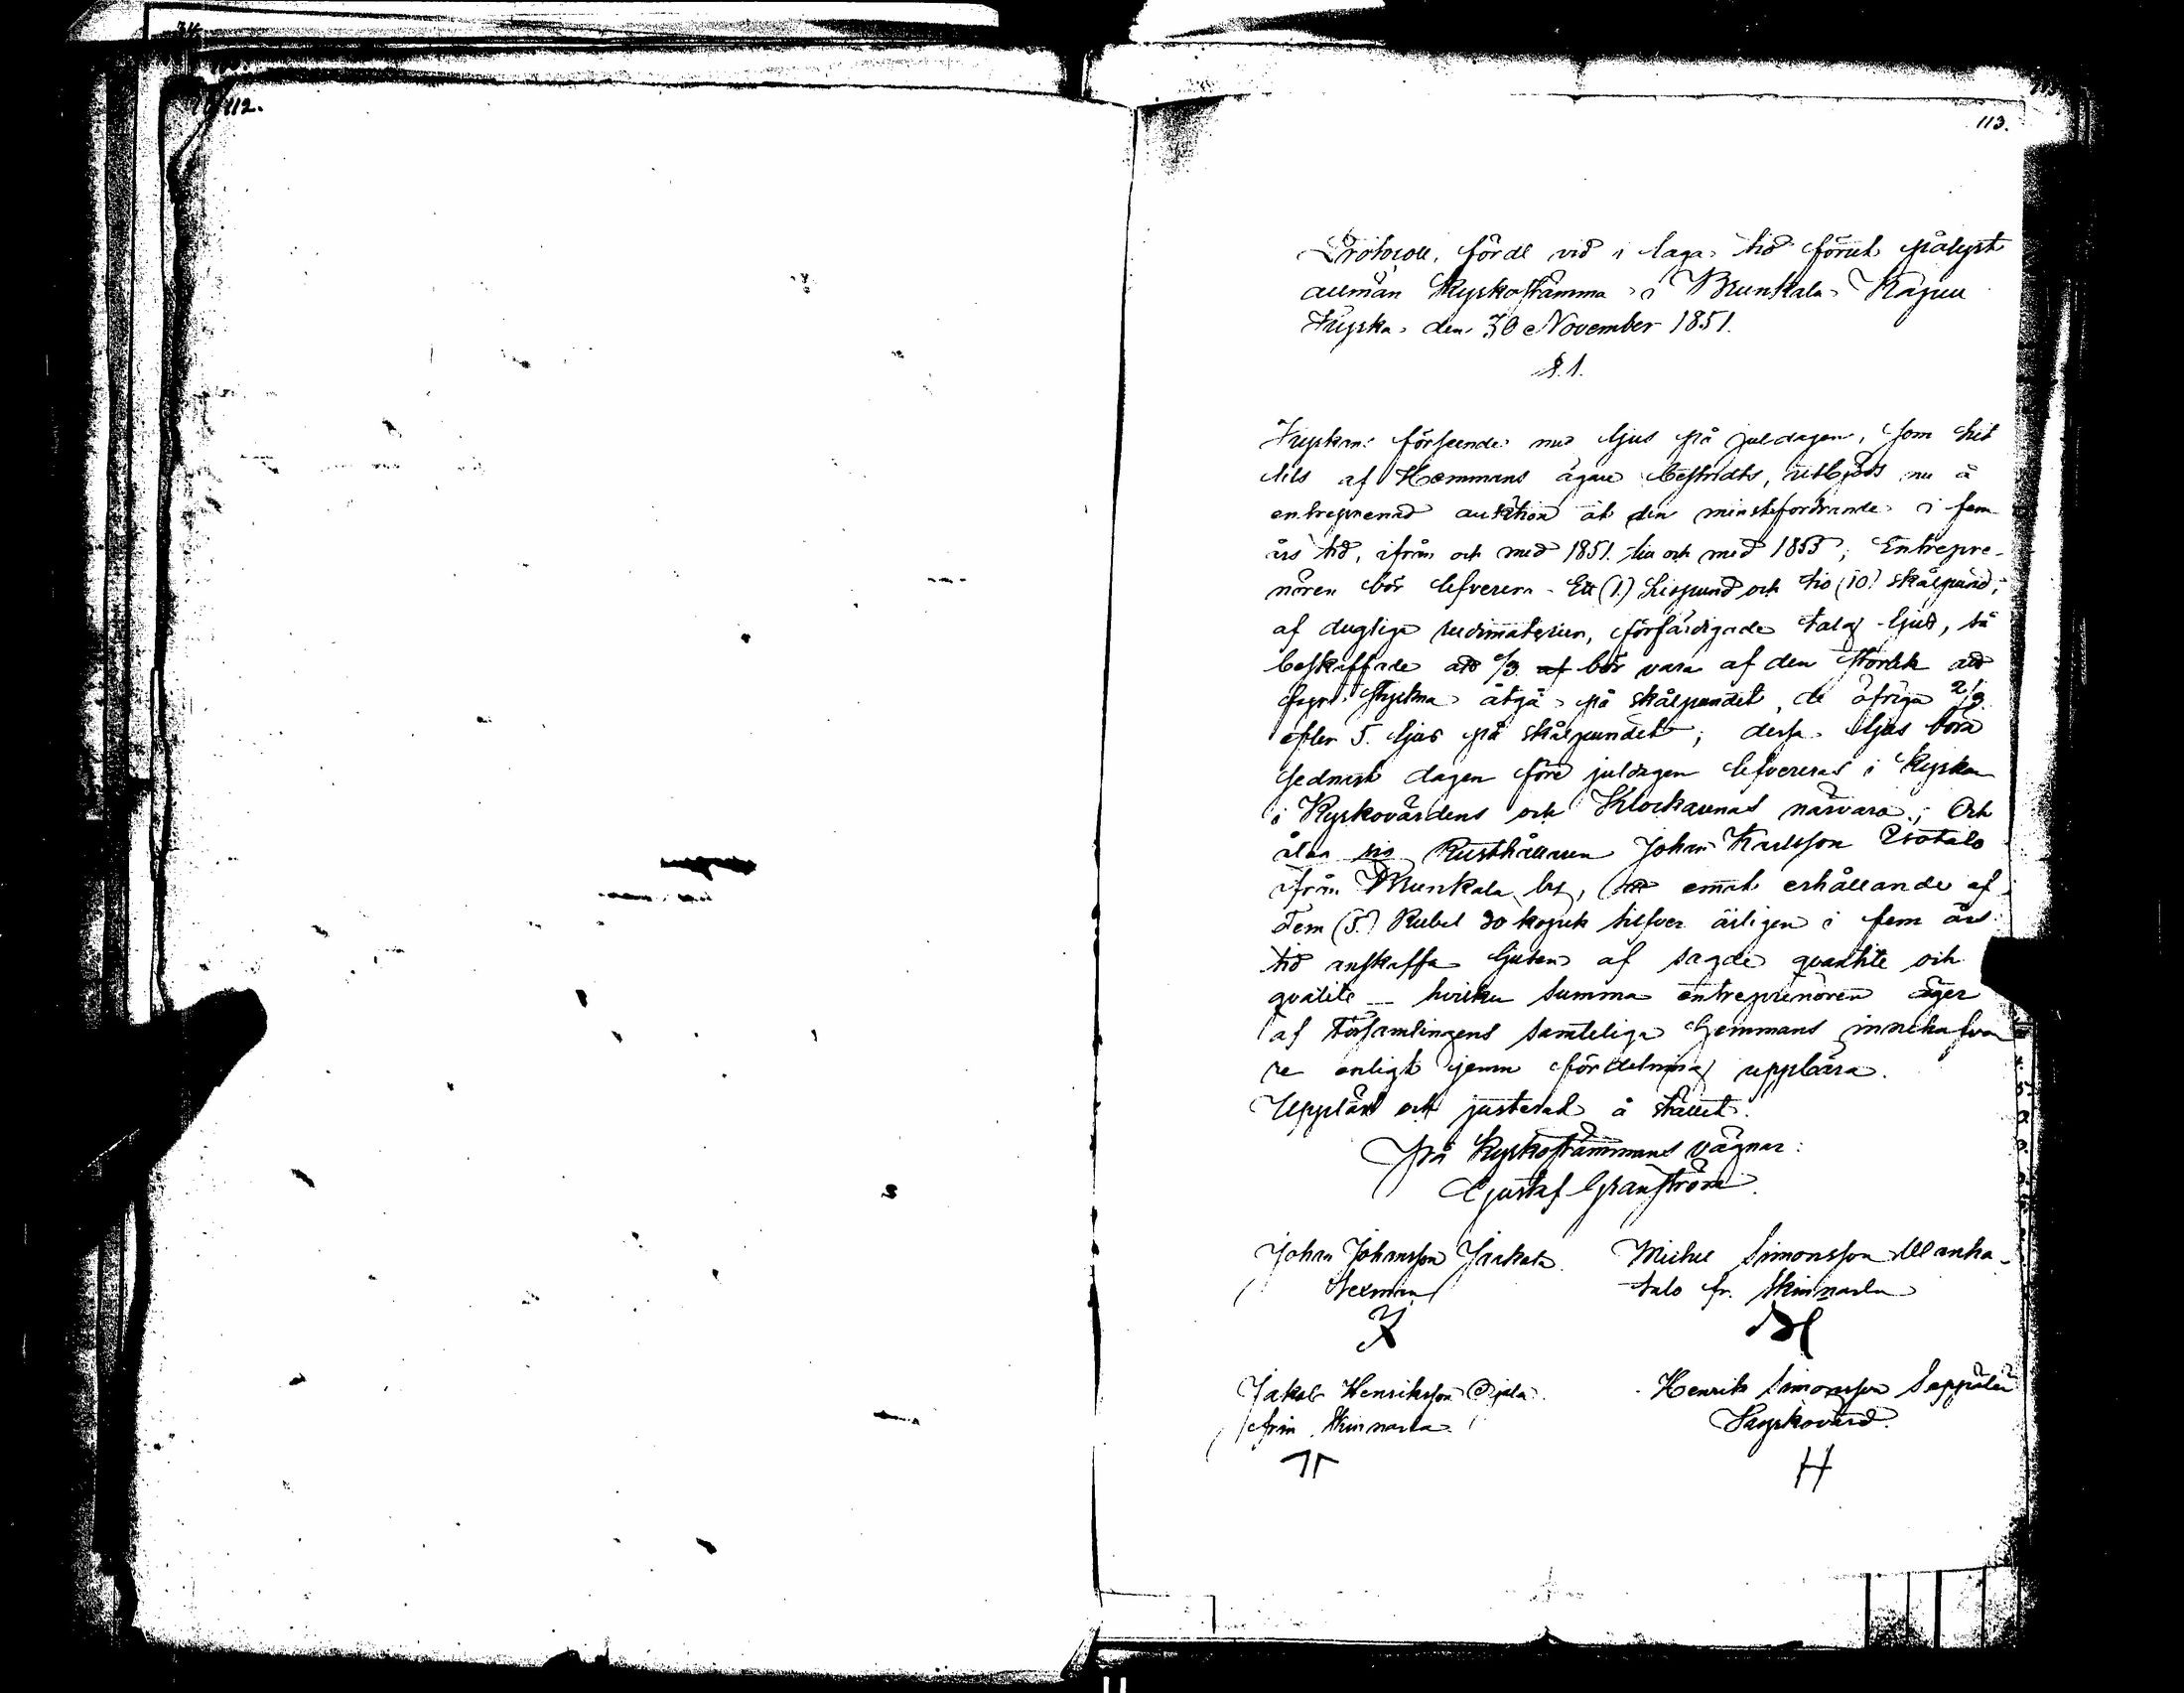 112.
113.
Protocoll, fördt vid i laga tid förut pålyst
allmän Kyrkostämma i Brunkala Kapell
Kyrka den 30 November 1851.
§. 1.
Kyrkans förseende med ljus på juldagen, som hit
tils af Hemmans ägare bestridts, utbjöds nu å
entreprenad auktion åt den minstfordrande i fem
års tid, ifrån och med 1851. till och med 1855; Entrepre-
nören bör lefverera Ett (1.) Lispund och tio (10) skålpund,
af dugliga rudimaterier, förfärdigade talg ljus, så
beskaffade att 1/3 af bör vara af den storlek att
fyra stycken åtgå på skålpundet, de öfriga 2/3
efter 5. ljus på skålpundet; dessa ljus böra
sednast dagen före juldagen lefvereras i Kyrkan
i Kyrkovärdens och Klockarenas närvaro; Och
åtog sig Rusthållaren Johan Karlsson Isotalo
ifrån Brunkala by, att emot erhållande af
Fem (5.) Rubel 30 kopek silfver årligen i fem års
tid anskaffa ljusen af sagde quantité och
qvalité hvilken summa entreprenören äger
af Församlingens samteliga Hemmans innehafva
re enligt jemn fördelning uppbära.
Uppläst och justerad å stället.
På Kyrkostämmans vägnar:
Gustaf Granström
Johan Johansson Jaakola
Sexman
Michel Simonsson Wanha-
talo fr. Skinnarla
Jakob Henriksson Ojala
från Skinnarla
Henrik Simonsson Seppälä
Kyrkovärd.
H